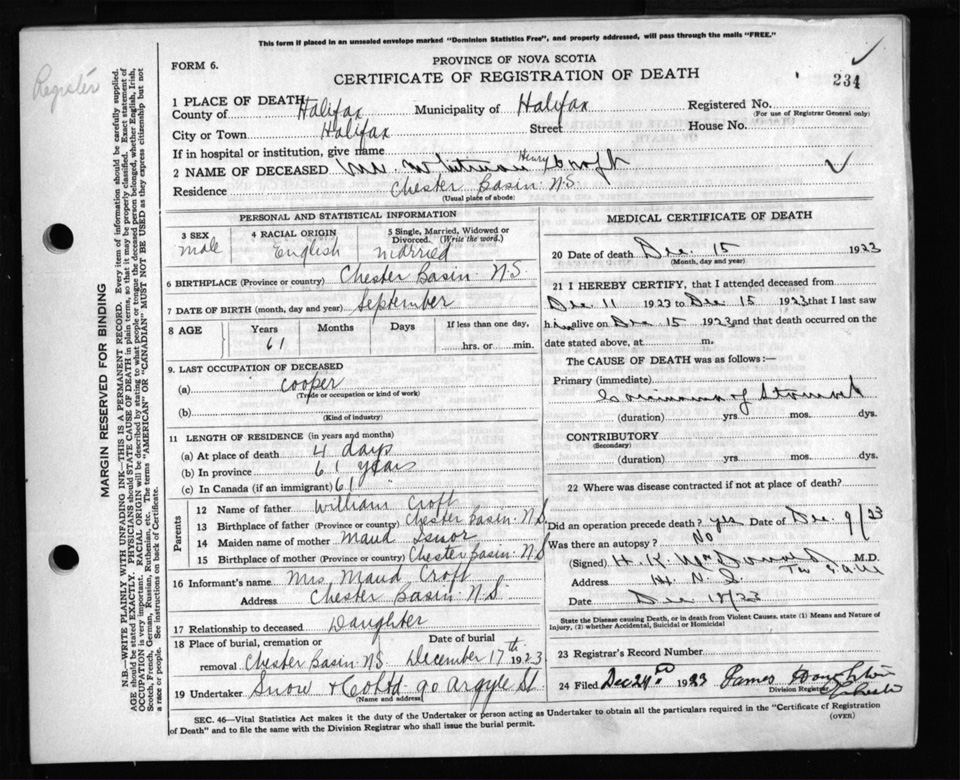 This form if placed in an unsealed envelope marked "Dominion Statistics Free", and properly addressed, will pass through the mails "FREE."
Register
FORM 6.
PROVINCE OF NOVA SCOTIA
CERTIFICATE OF REGISTRATION OF DEATH
234
MARGIN RESERVED FOR BINDING
N.B.—WRITE PLAINLY WITH UNFADING INK—THIS IS A PERMANENT RECORD. Every item of information should be carefully supplied.
AGE should be stated EXACTLY. PHYSICIANS should STATE CAUSE OF DEATH in plain terms, so that it may be properly classified. Exact statement of
OCCUPATION is very important. RACIAL ORIGIN will be described by stating to what people or tongue the deceased person belonged, whether English, Irish,
Scotch, French, German, Russian, Ruthenian, etc. The terms "AMERICAN" OR "CANADIAN" MUST NOT BE USED as they express citizenship but not
a race or people. See instructions on back of Certificate.
1 PLACE OF DEATH
County of Halifax Municipality of Halifax Registered No.
(For use of Registrar General only)
City or Town Halifax Street House No.
If in hospital or institution, give name
2 NAME OF DECEASED Whitman Henry Croft
Residence Chester Basin N.S.
(Usual place of abode)
PERSONAL AND STATISTICAL INFORMATION
3 SEX 4 RACIAL ORIGIN 5 Single, Married, Widowed or Divorced. (Write the word.)
male English married
6 BIRTHPLACE (Province or country) Chester Basin N.S.
7 DATE OF BIRTH (month, day and year) September
8 AGE Years Months Days If less than one day,
61 hrs. or min.
9. LAST OCCUPATION OF DECEASED
(a) cooper
(Trade or occupation or kind of work)
(b)
(Kind of industry)
11 LENGTH OF RESIDENCE (in years and months)
(a) At place of death 4 days
(b) In province 61 years
(c) In Canada (if an immigrant) 61 "
Parents
12 Name of father William Croft
13 Birthplace of father (Province or country) Chester Basin N.S
14 Maiden name of mother Maud
15 Birthplace of mother (Province or country) Chester Basin N.S
16 Informant's name Mrs Maud Croft
Address Chester Basin N.S.
17 Relationship to deceased Daughter
18 Place of burial, cremation or removal Chester Basin N.S. Date of burial December 17th 1923
19 Undertaker Snow & Co Ltd 90 Argyle St
(Name and address)
MEDICAL CERTIFICATE OF DEATH
20 Date of death Dec. 15 1923
(Month, day and year)
21 I HEREBY CERTIFY, that I attended deceased from
Dec 11 1923 to Dec 15 1923 that I last saw
him alive on Dec 15 1923 and that death occurred on the
date stated above, at m.
The CAUSE OF DEATH was as follows:—
Primary (immediate)
Carcinoma of Stomach
(duration) yrs. mos. dys.
CONTRIBUTORY
(Secondary)
(duration) yrs. mos. dys.
22 Where was disease contracted if not at place of death?
Did an operation precede death? yes Date of Dec. 9/23
Was there an autopsy? No
(Signed) H. K. McDonald M.D.
Address
Date Dec 18/23
State the Disease causing Death, or in death from Violent Causes, state (1) Means and Nature of
Injury, (2) whether Accidental, Suicidal or Homicidal
23 Registrar's Record Number
24 Filed Dec 24th 1923 James
Division Registrar
SEC. 46—Vital Statistics Act makes it the duty of the Undertaker or person acting as Undertaker to obtain all the particulars required in the "Certificate of Registration
of Death" and to file the same with the Division Registrar who shall issue the burial permit.
(OVER)